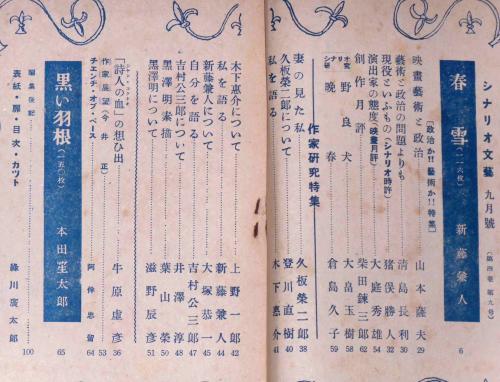 シナリオ文藝 九月號 (第四卷第九号)
春雪(一二六枚) 新藤兼人 6
[政治か!!藝術か!!特集]
映畫藝術と政治 山本薩夫 29
藝術と政治の問題よりも 清島長利 30
現役といふもの(シナリオ時評) 猪俣勝人 32
演出家の態度(映畫月評) 大庭秀雄 54
創作月評 柴田錬三郎 62
シナリオ研究 野良犬 大畠玉樹 58
晩春 倉島久子 59
作家研究特集
妻の見た私 久板榮二郎 38
久板榮二郎について 登川直樹 40
私を語る 木下惠介 41
木下惠介について 上野一郎 42
私を語る 新藤兼人 44
新藤兼人について 大塚恭一 45
自分を語る 吉村公三郎 47
吉村公三郎について 井澤淳 48
黒澤明素描 葉山榮 50
黒澤明について 滋野辰彦 51
「詩人の血」の想ひ出 牛原虚彦 36
作家展望(今井正) 53
チェンヂ・オブ・ペース 阿木忠留 64
黒い羽根(一五〇枚) 本田莖太郎 65
編集後記 100
表紙・扉・目次・カット 綠川廣太郎